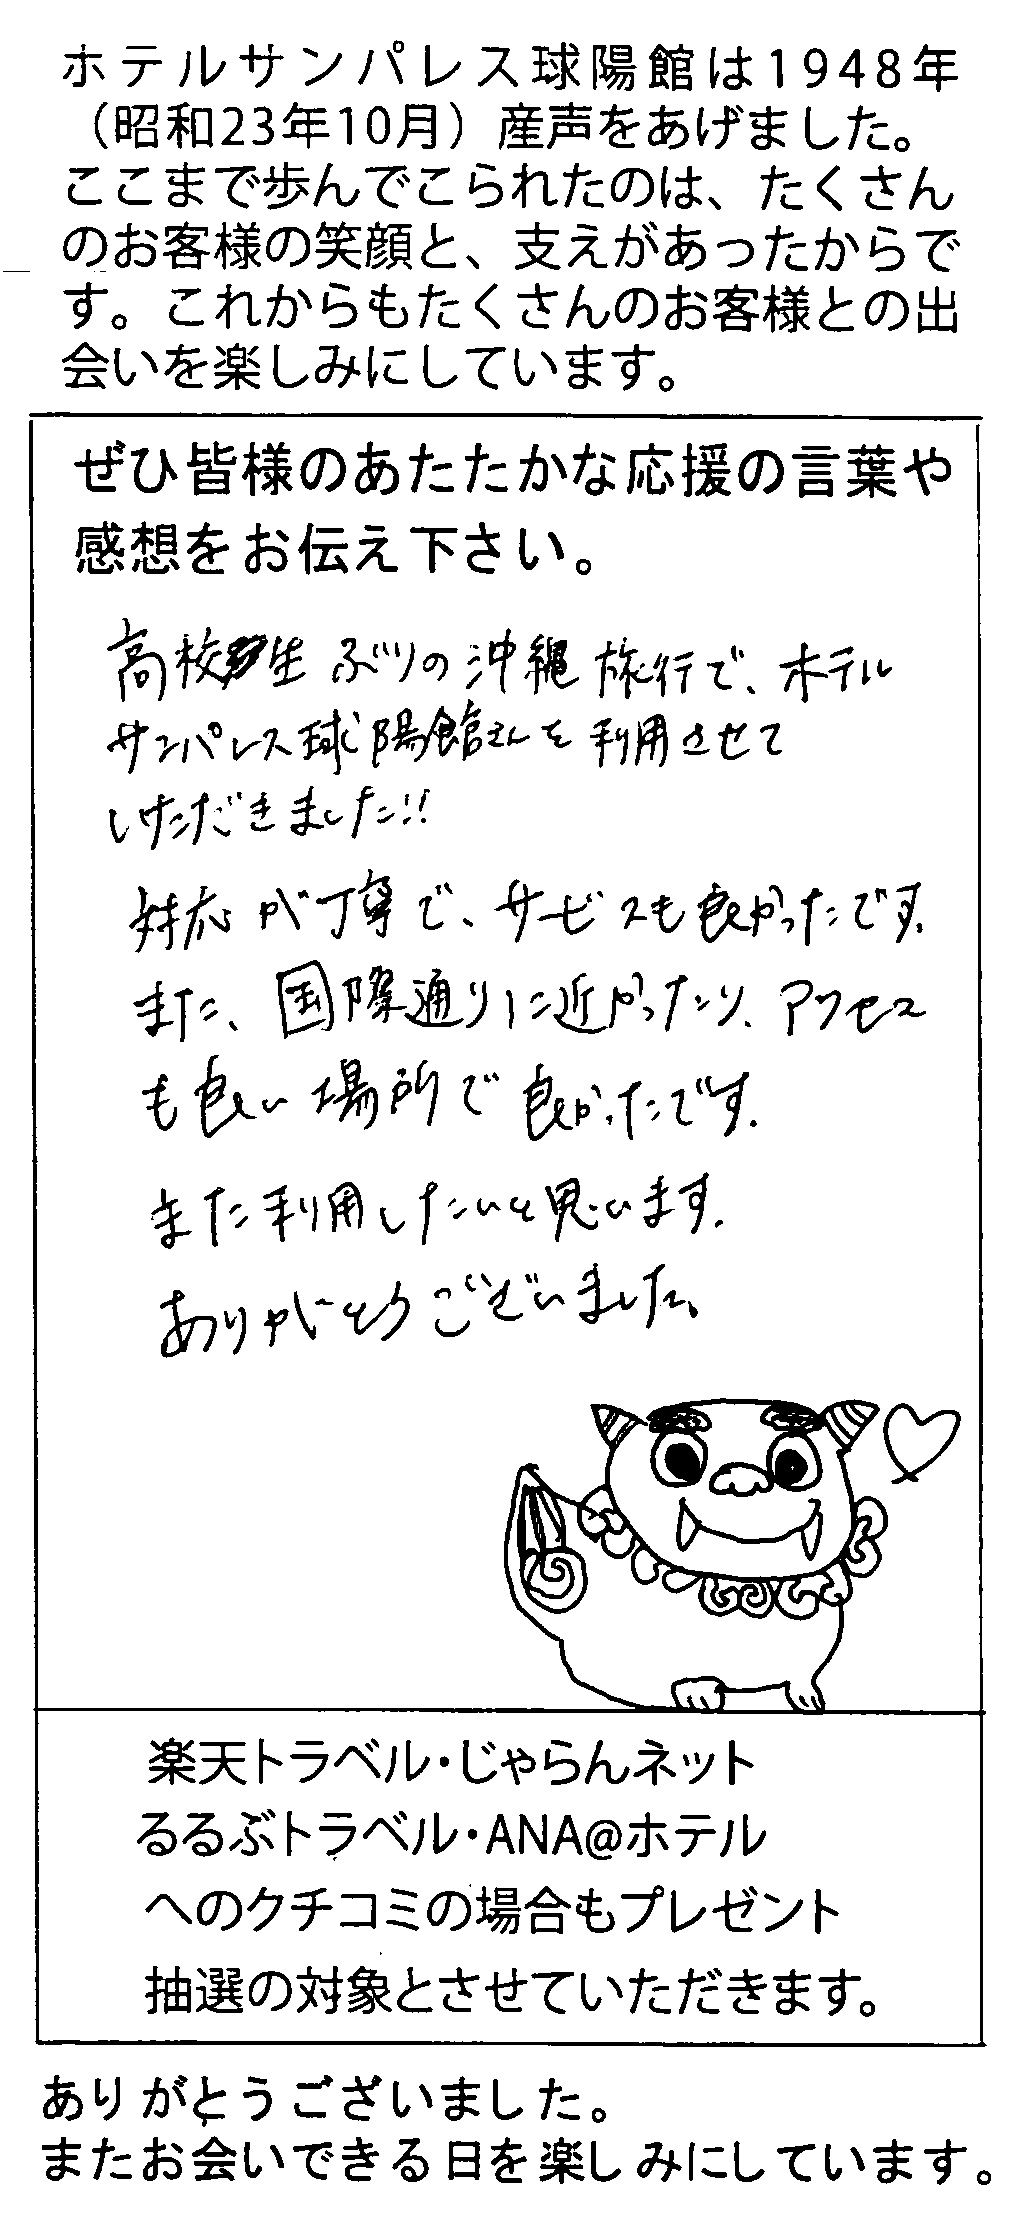 ホテルサンパレス球陽館は1948年
（昭和23年10月）産声をあげました。
ここまで歩んでこられたのは、たくさん
のお客様の笑顔と、支えがあったからで
す。これからもたくさんのお客様との出
会いを楽しみにしています。
ぜひ皆様のあたたかな応援の言葉や
感想をお伝え下さい。
高校生ぶりの沖縄旅行で、ホテル
サンパレス球陽館さんを利用させて
いただきました!!
対応が丁寧で、サービスも良かったです。
また、国際通りに近かったり、アクセス
も良い場所で良かったです。
また利用したいと思います。
ありがとうございました。
楽天トラベル・じゃらんネット
るるぶトラベル・ANA@ホテル
へのクチコミの場合もプレゼント
抽選の対象とさせていただきます。
ありがとうございました。
またお会いできる日を楽しみにしています。